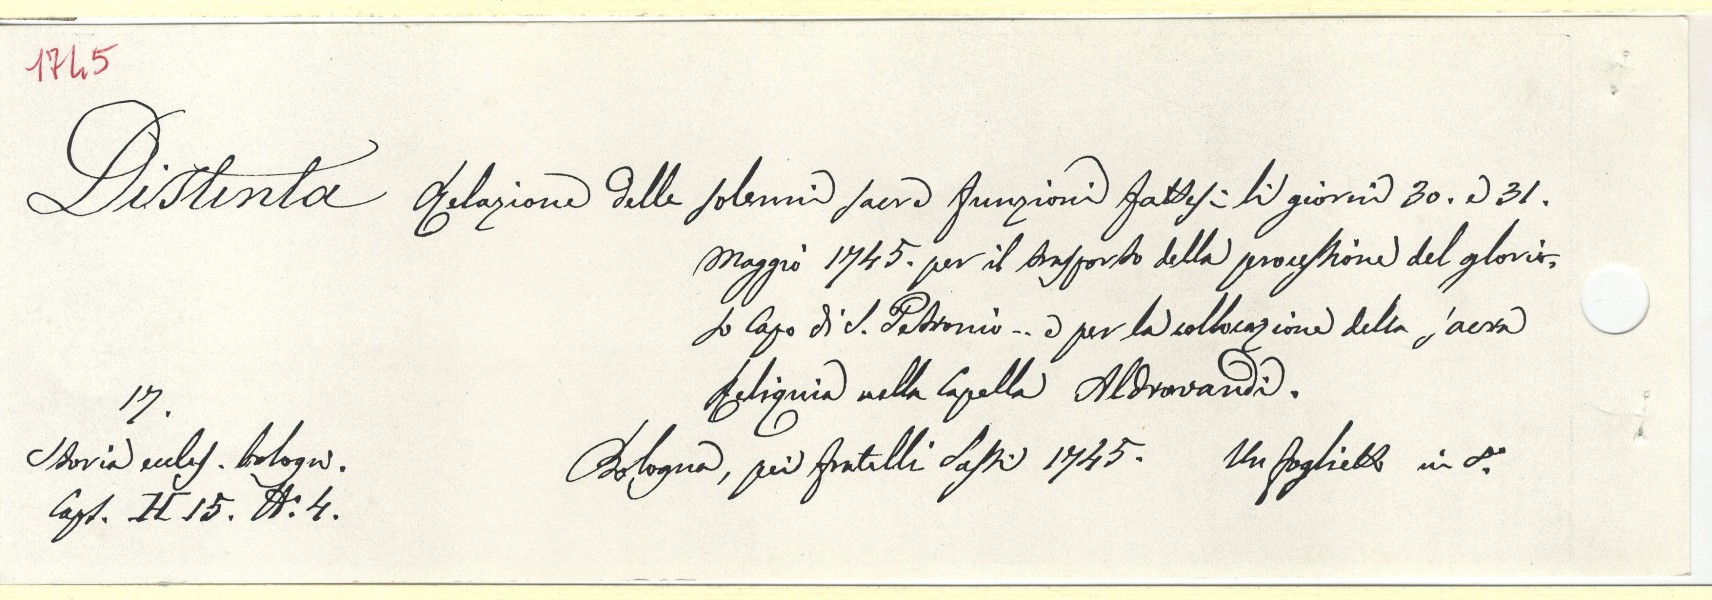 1745
Distenta Relazione delle solenni sacre funzioni fattesi li giorni 30. e 31.
Maggio 1745. per il trasporto della processione del glorio-
so Capo di S. Petronio .. e per la collocazione della sacra
Reliquia nella Capella Aldrovandi.
17.
Bologna, pei fratelli Sassi 1745. Un foglietto in 8.º
Storia eccles. bologn.
Capt. H 15. Nº. 4.